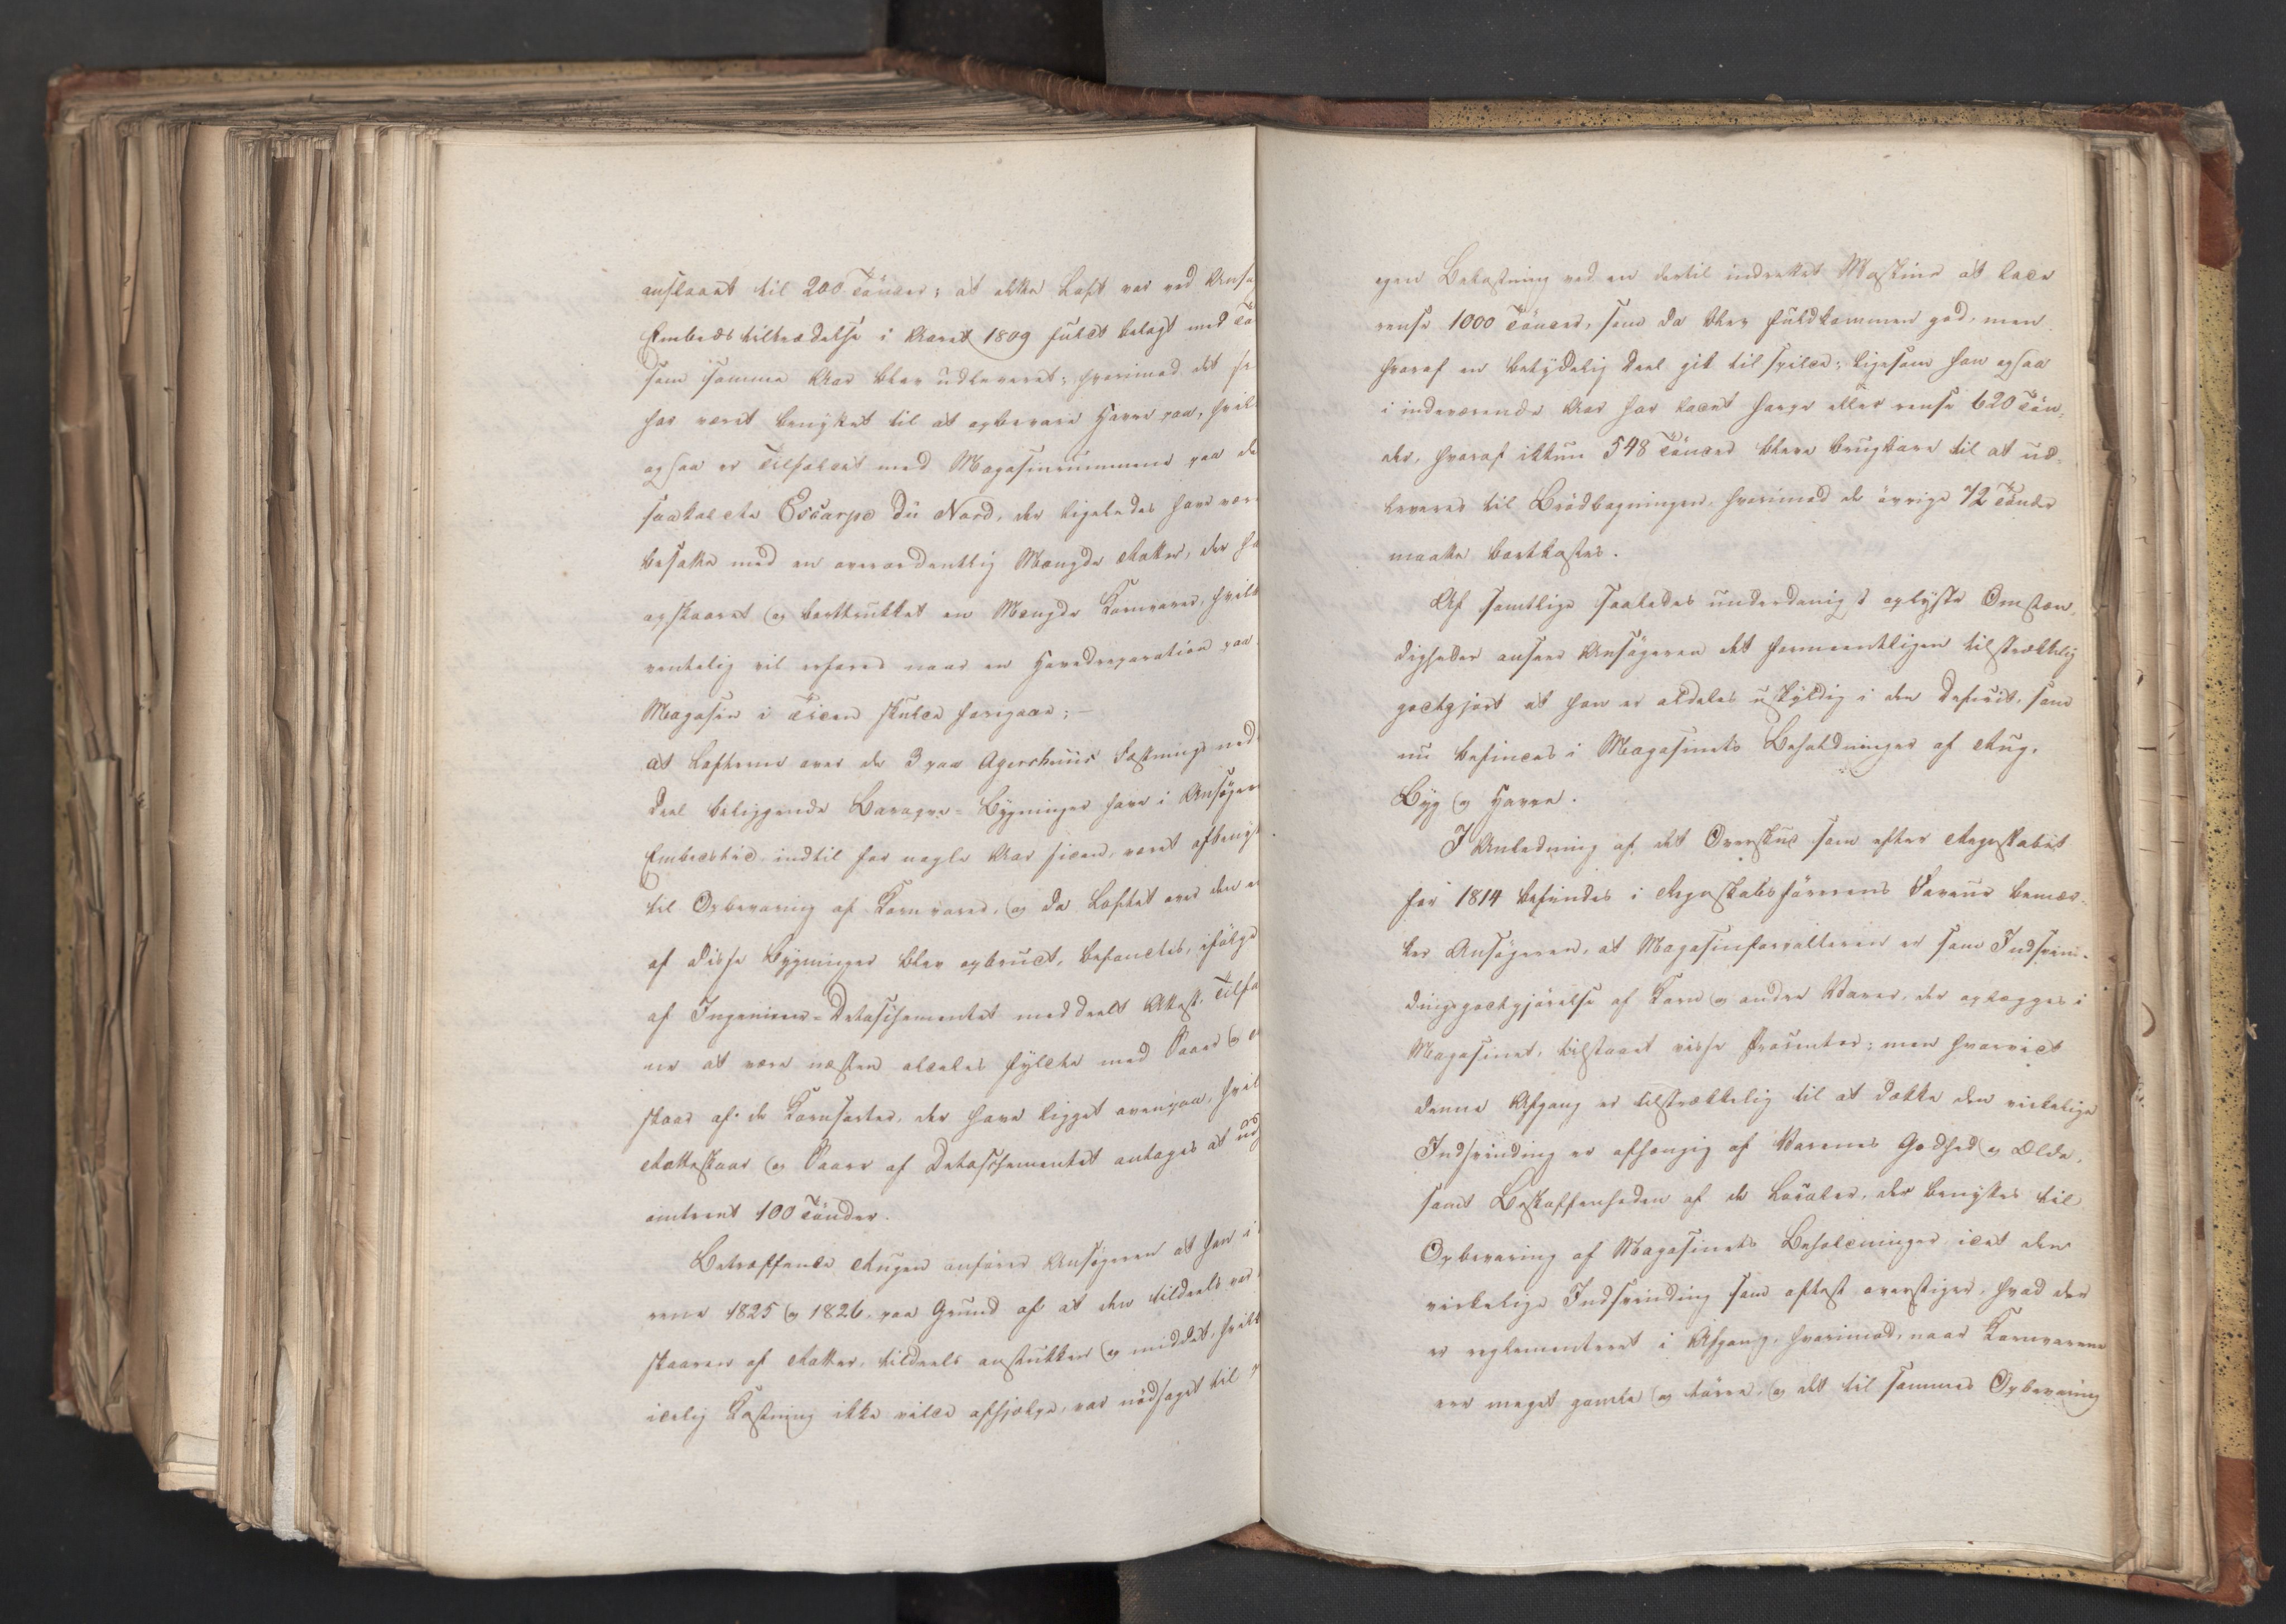 anslaaet til 200 Tönder; at dette Loft var ved Ansø
Embedstiltrædelse i Aaret 1809 fuldt belagt med Tö
som samme Aar blev udleveret; hvorimod det se
har været benyttet til at opbevare Havre paa, hvil
ogsaa er Tilfældet med Magasinrummene paa de
saakaldte Escarpe du Nord, der ligeledes have vær
besatte med en overordentlig Mængde Rotter, der ha
opskaaret og borttrukket en Mængde Kornvarer, hvilk
ventelig vil erfares naar en Hovedreparation paa
Magasin i Tiden skulde foregaae;
at Lofterne over de 3 paa Agershuus Fæstnings ned
Deel beliggende Baraque-Bygninger have i Ansøger
Embedstid, indtil for nogle Aar siden, været afbenyt
til Opbevaring af Kornvarer, og da Loftet over den e
af disse Bygninger blev opbrudt, befandtes, ifølge
af Ingenieur-Detaschementet meddeelt Attest, Tilfa
ne at være næsten aldeles fyldte med Saaer og
skaar af de Kornsorter, der have liggget ovenpaa, hvil
Rotteskaar og Saaer af Detaschementet antages at ud
omtrent 100 Tönder.
Betræffende Rugen anförer Ansøgeren at han i
rene 1825 og 1826, paa Grund af at den tildeels var
skaaren af Rotter, tildeels anstukken og middet, hvilk
idelig Kastning ikke vilde afhjælpe, var nödsaget til
egen Bekostning ved en dertil indrettet Maskine at lade
rense 1000 Tönder, som da blev fuldkommen god, men
hvoraf en betydelig Deel gik til spilde; ligesom han ogsaa
i indeværende Aar har ladet harpe eller rense 620 Tön-
der, hvoraf ikkun 548 Tönder bleve brugbare til at ud-
leveres til Brödbagningen, hvorimod de övrige 72 Tönder
maatte bortkastes.
Af samtlige saaledes underdanigst oplyste Omstæn-
digheder anseer Ansøgeren det formeentligen tilstrækkelig
godtgjort at han er aldeles uskyldig i den Deficit, som
nu befindes i Magasinets Beholdninger af Rug,
Byg og Havre.
I Anledning af det Overskud som efter Regnskabet
for 1814 befindes i Regnskabsförerens Faveur bemær-
ker Ansøgeren, at Magasinforvalteren er som Indsvin-
dingsgodtgjörelse af Korn og andre Varer, der oplægges i
Magasinet, tilstaaet visse Procenter; men hvorvidt
denne Afgang er tilstrækkelig til at dække den virkelige
Indsvinding er afhængig af Varenes Godhed og Ælde,
samt Beskaffenheden af de Localer, der benyttes til
Opbevaring af Magasinets Beholdninger, idet den
virkelige Indsvinding som oftest overstiger, hvad der
er reglementeret i Afgang, hvorimod, naar Kornvarene
ere meget gamle og törre, og det til sammes Opbevaring